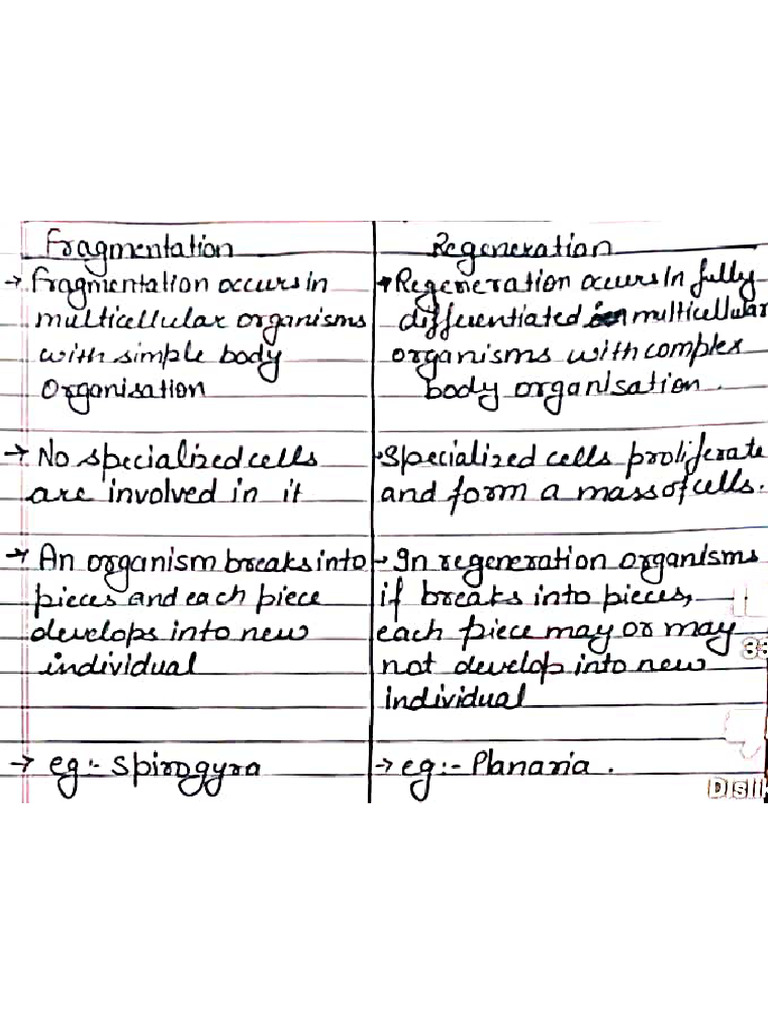 Fragmentation
→ Fragmentation occurs in
multicellular organisms
with simple body
Organisation
→ No specialized cells
are involved in it
→ An organism breaks into
pieces and each piece
develops into new
individual
→ eg:- Spirogyra
Regeneration
→ Regeneration occurs In fully
differentiated multicellular
organisms with complex
body organisation.
Specialized cells proliferate
and form a mass of cells.
→ In regeneration organisms
if breaks into pieces,
each piece may or may
not develop into new
individual
→ eg:- Planaria.
33
Dislik